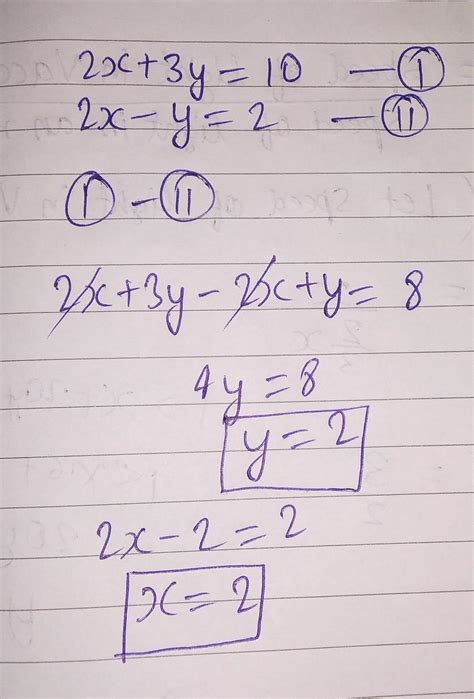 2x+3y=10 —Ⓘ
2x-y=2 —(II)
Ⓘ-(II)
2x+3y-2x+y=8
4y=8
y=2
2x-2=2
x=2